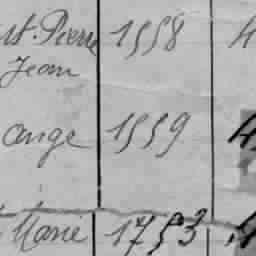 st. Pierre 1558 4
Jean
ange 1559 4
Marie 1753 4